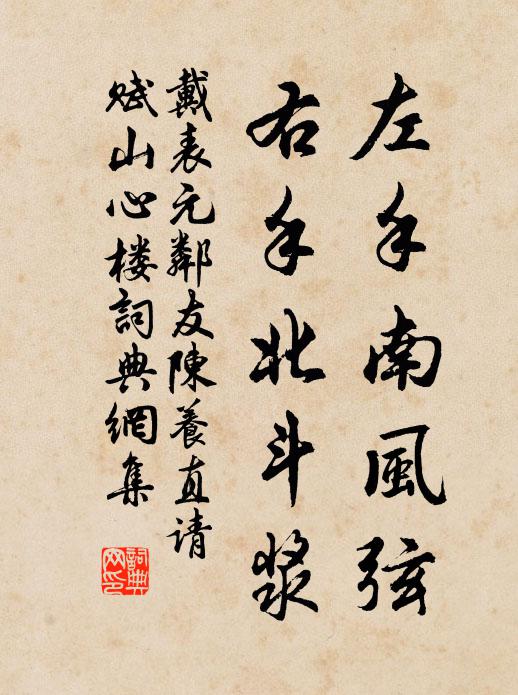 左手南風弦
右手北斗漿
戴表元鄰友陳養直请
赋山心楼詞典網集
詞典
网印